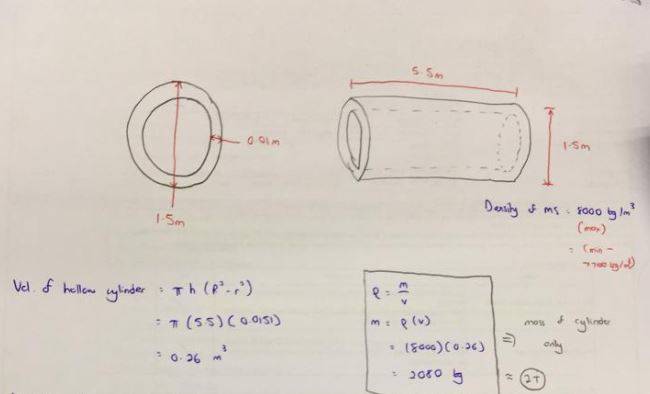 5.5m
0.01m
1.5m
1.5m
Density of MS = 8000 kg/m³
(max)
= (min -
7700 kg/m³)
Vol. of hollow cylinder = π h (R² - r²)
= π (5.5) (0.0151)
= 0.26 m³
ρ = m/v
m = ρ (v)
= (8000) (0.26)
= 2080 kg
⇒ mass of cylinder
only
≈ 2T